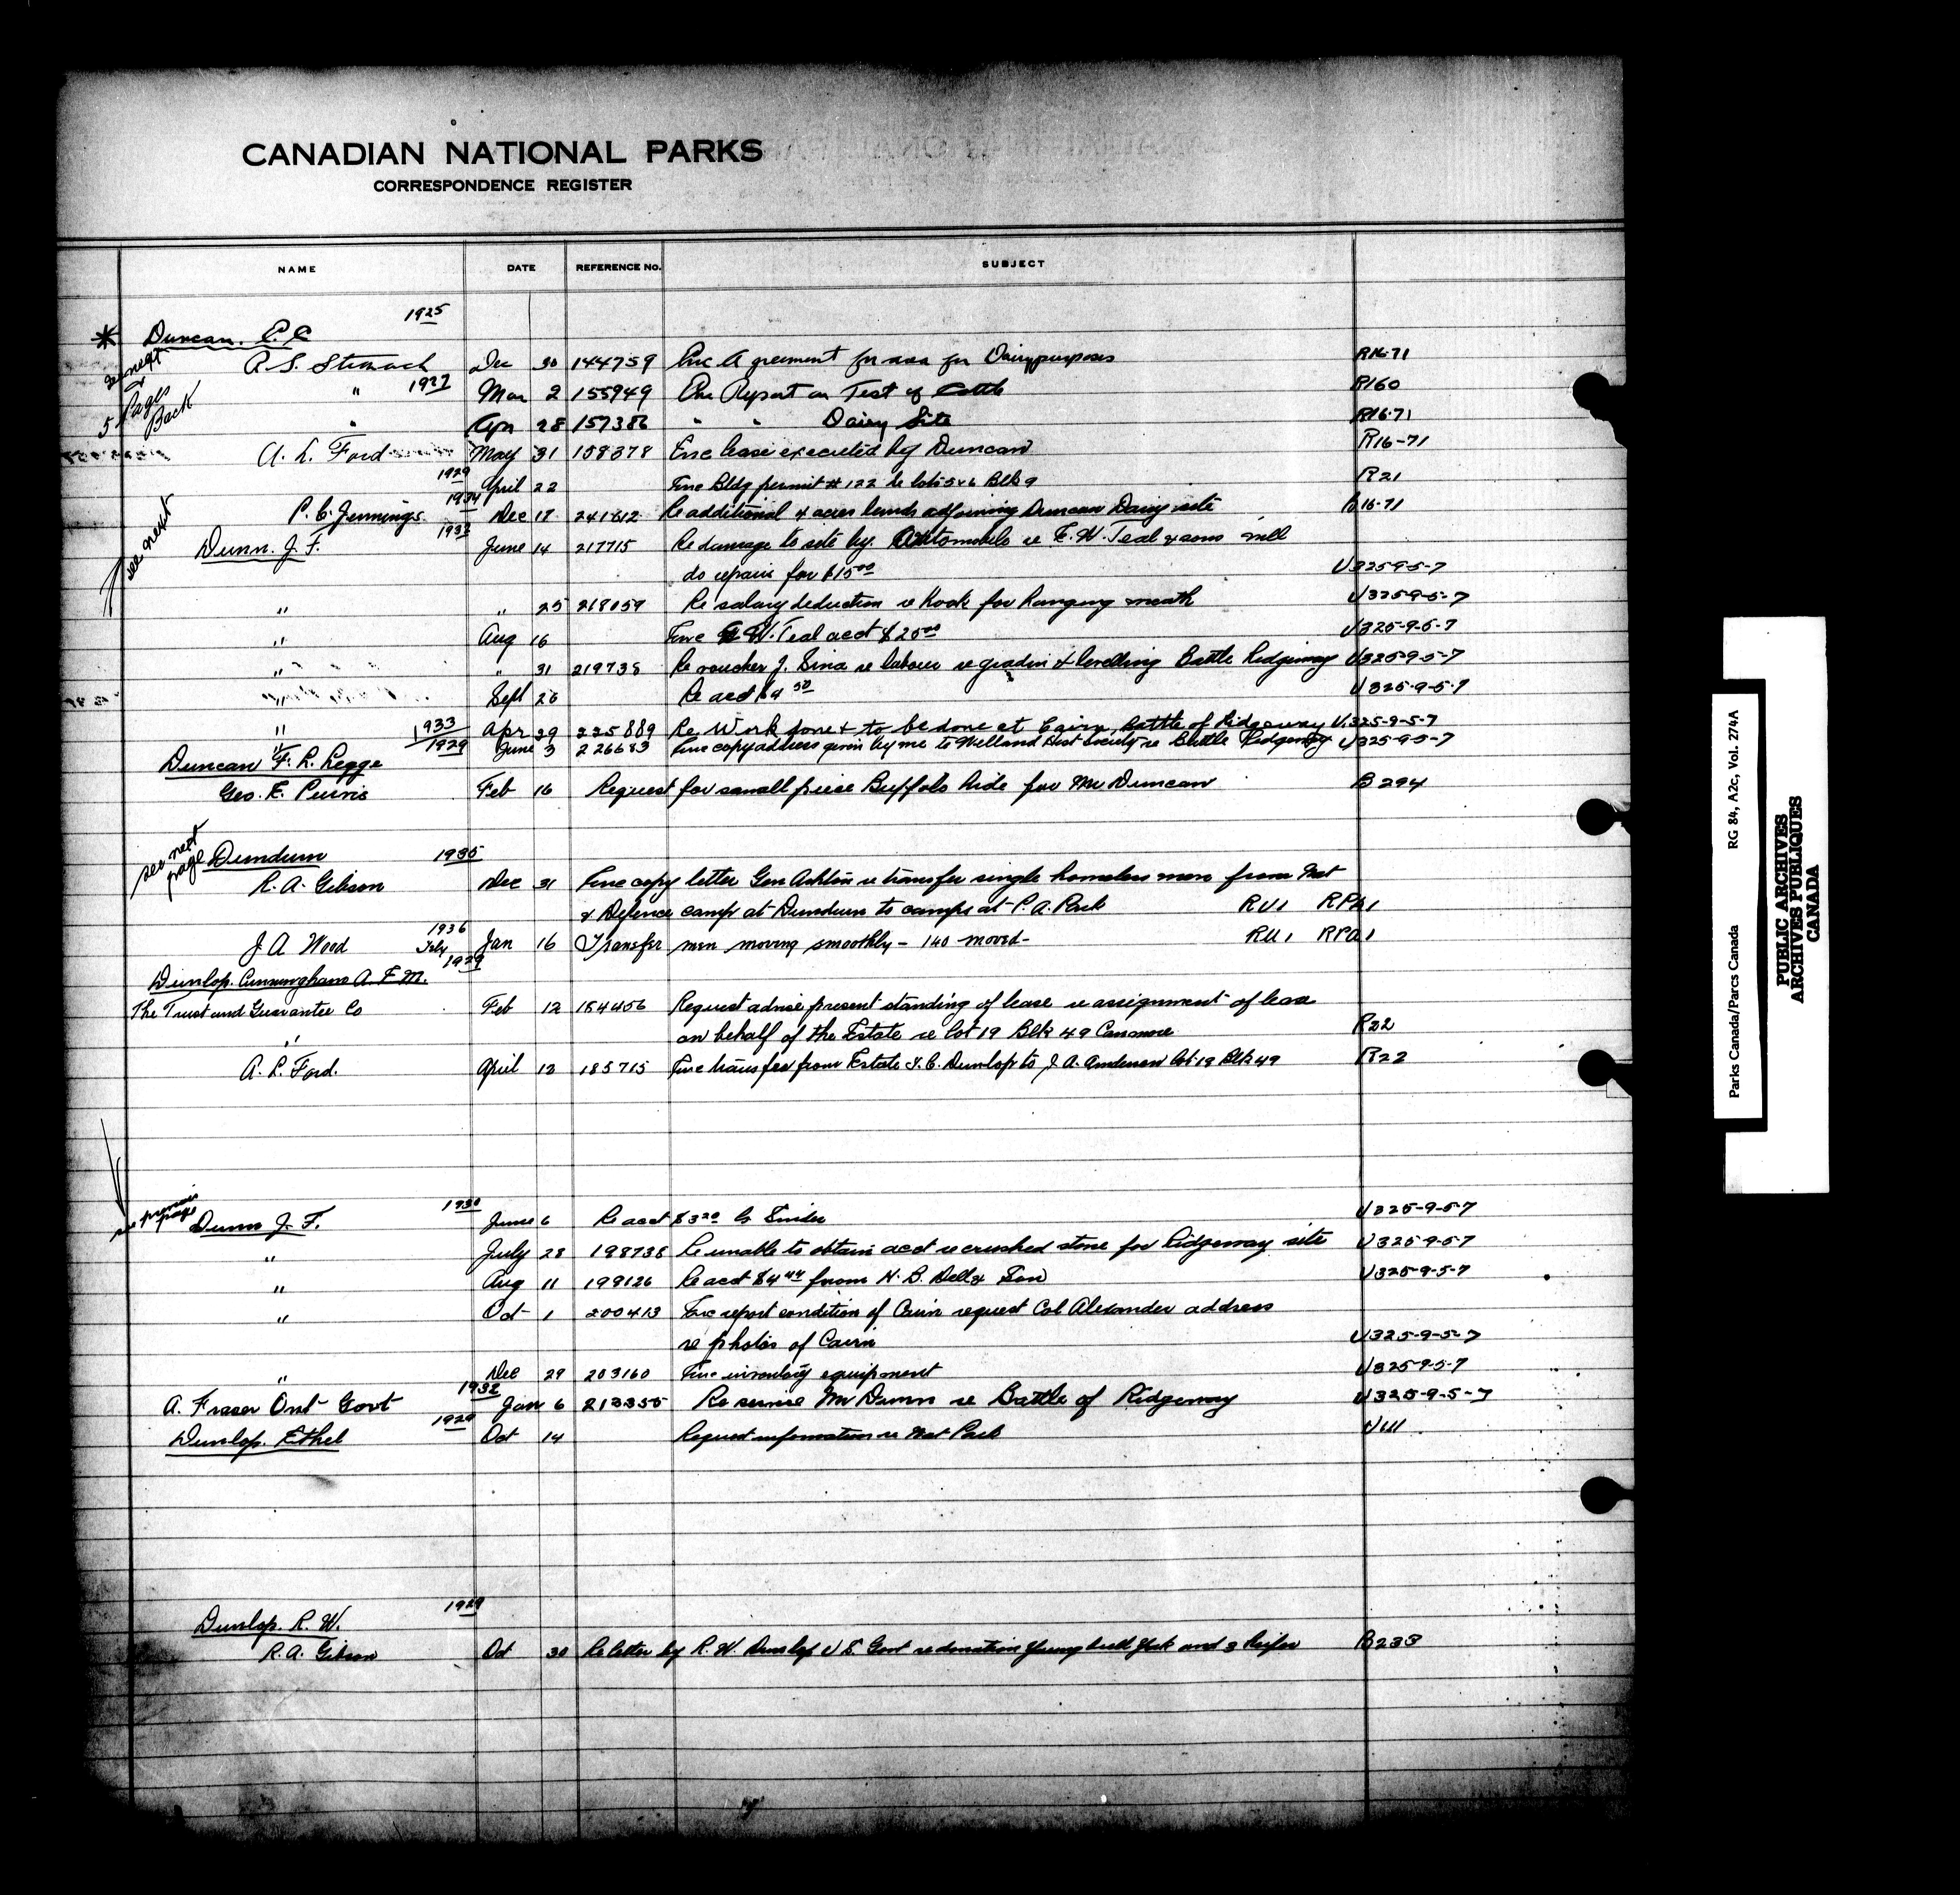 CANADIAN NATIONAL PARKS
CORRESPONDENCE REGISTER
NAME DATE REFERENCE No. SUBJECT
1925
* Duncan. C. C
see next & 5 Pages Back
R. S. Stronach Dec 30 144759 Enc Agreement for area for Dairy purposes R16-71
" 1927 Mar 2 155949 Enc Report on Test of Cattle R160
" Apr 28 157386 " " Dairy Site R16-71
A. L. Ford May 31 158378 Enc lease executed by Duncan R16-71
1929 April 22 Enc Bldg permit # 122 re lots 5 & 6 Blk 9 R21
P. C. Jennings. 1934 Dec 17 241812 Re additional 4 acres lands adjoining Duncan Dairy site R16-71
see next
Dunn. J. F. 1932 June 14 217715 Re damage to site by Automobile re E. W. Teal & sons will
do repairs for $15.00 U325-9-5-7
" " 25 218059 Re salary deduction re Hook for Hanging wreath U325-9-5-7
" Aug 16 Enc E. W. Teal acct $20.00 U325-9-5-7
" " 31 219738 Re voucher J. Sina re labour re gradin & levelling Battle Ridgeway U325-9-5-7
" Sept 26 Re acct $9.50 U325-9-5-7
" 1933 Apr 29 225889 Re Work done & to be done at Cairn, Battle of Ridgeway U325-9-5-7
" 1929 June 3 226683 Enc copy address given by me to Welland Hist Society re Battle Ridgeway U325-9-5-7
Duncan F. L. Legge
Geo. E. Purvis Feb 16 Request for small piece Buffalo hide for Mr Duncan B294
see next page
Dundurn 1935
R. A. Gibson Dec 31 Enc copy letter Gen Ashton re transfer single homeless men from Nat
& Defence camp at Dundurn to camps at P. A. Park RU1 RPA1
J. A Wood 1936 Jan 16 Transfer men moving smoothly - 140 moved - RU1 RPA1
1929
Dunlop. Cunningham A. F M.
The Trust and Guarantee Co Feb 12 184456 Request advise present standing of lease re assignment of lease
" on behalf of the Estate re lot 19 Blk 49 Canmore R22
A. L. Ford. April 12 185715 Enc transfer from Estate J. C. Dunlop to J. A. Anderson lot 19 Blk 49 R22
see previous page
Dunn J. F. 1930 June 6 Re acct $3.20 G Snider U325-9-5-7
" July 28 198738 Re unable to obtain acct re crushed stone for Ridgeway site U325-9-5-7
" Aug 11 199126 Re acct $4.44 from N. B. Dell & Son U325-9-5-7
" Oct 1 200413 Enc report condition of Cairn request Col Alexander address
re photos of Cairn U325-9-5-7
" Dec 29 203160 Enc inventory equipment U325-9-5-7
A. Fraser Ont Govt 1932 Jan 6 213355 Re service Mr Dunn re Battle of Ridgeway U325-9-5-7
Dunlop. Ethel 1929 Oct 14 Request information re Nat Park U111
Dunlop. R. W. 1929
R. A. Gibson Oct 30 Re letter by R. W. Dunlop U S. Govt re donation young bull Yak and 3 heifer B233
RG 84, A2c, Vol. 274A
Parks Canada/Parcs Canada
PUBLIC ARCHIVES
ARCHIVES PUBLIQUES
CANADA